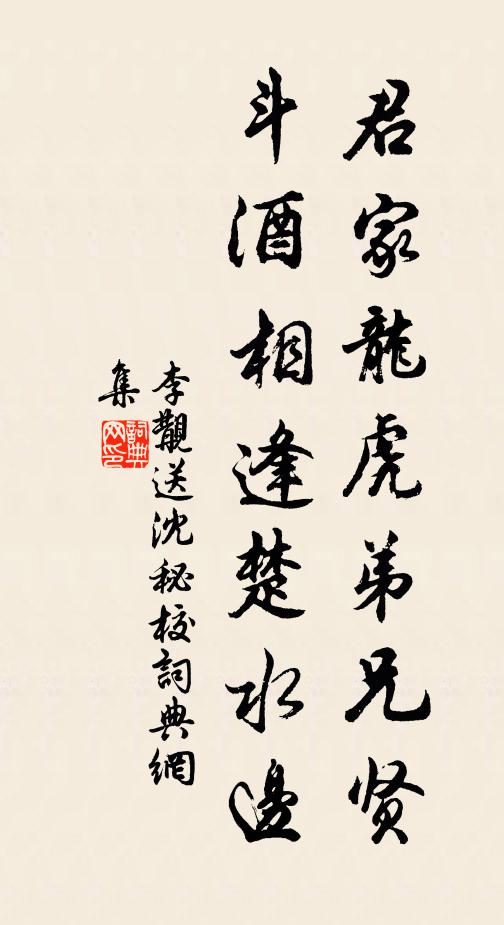 君家龍虎弟兄贤
斗酒相逢楚水邊
李觀送沈秘校詞典網
集
詞典
网印